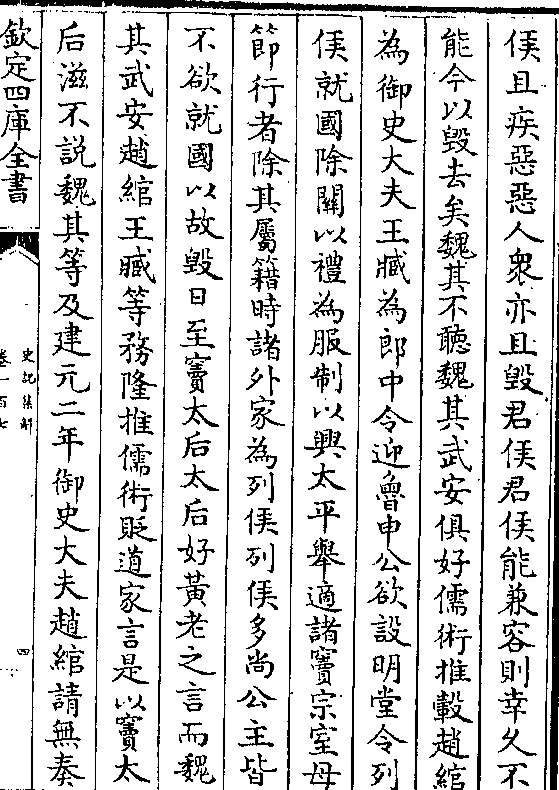 侯且疾惡惡人衆亦且毀君侯君侯能兼容則幸久不
能今以毀去矣魏其不聽魏其武安俱好儒術推轂趙綰
為御史大夫王臧為郎中令迎魯申公欲設明堂令列
侯就國除關以禮為服制以興太平舉適諸竇宗室毋
節行者除其屬籍時諸外家為列侯列侯多尚公主皆
不欲就國以故毀日至竇太后太后好黃老之言而魏
其武安趙綰王臧等務隆推儒術貶道家言是以竇太
后滋不說魏其等及建元二年御史大夫趙綰請無奏
欽定四庫全書
史記集解
卷一百七
四